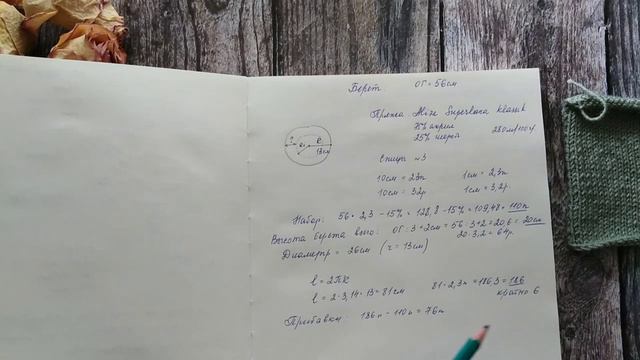 Берет ОГ = 56см
Пряжа Alize Superlana klassik
75% акрил
25% шерсть 280м/100г.
Спицы №3
10см = 23п 1см = 2,3п
10см = 32р 1см = 3,2р.
R
13см
Набор: 56 · 2,3 - 15% = 128,8 - 15% = 109,48 = 110п
Высота берета всего: ОГ : 3 + 2см = 56 : 3 + 2 = 20,6 = 20см
20 · 3,2 = 64р.
Диаметр = 26см (r = 13см)
l = 2πR
l = 2 · 3,14 · 13 = 81см 81 · 2,3п = 186,3 = 186
кратно 6
Прибавки: 186п - 110п = 76п